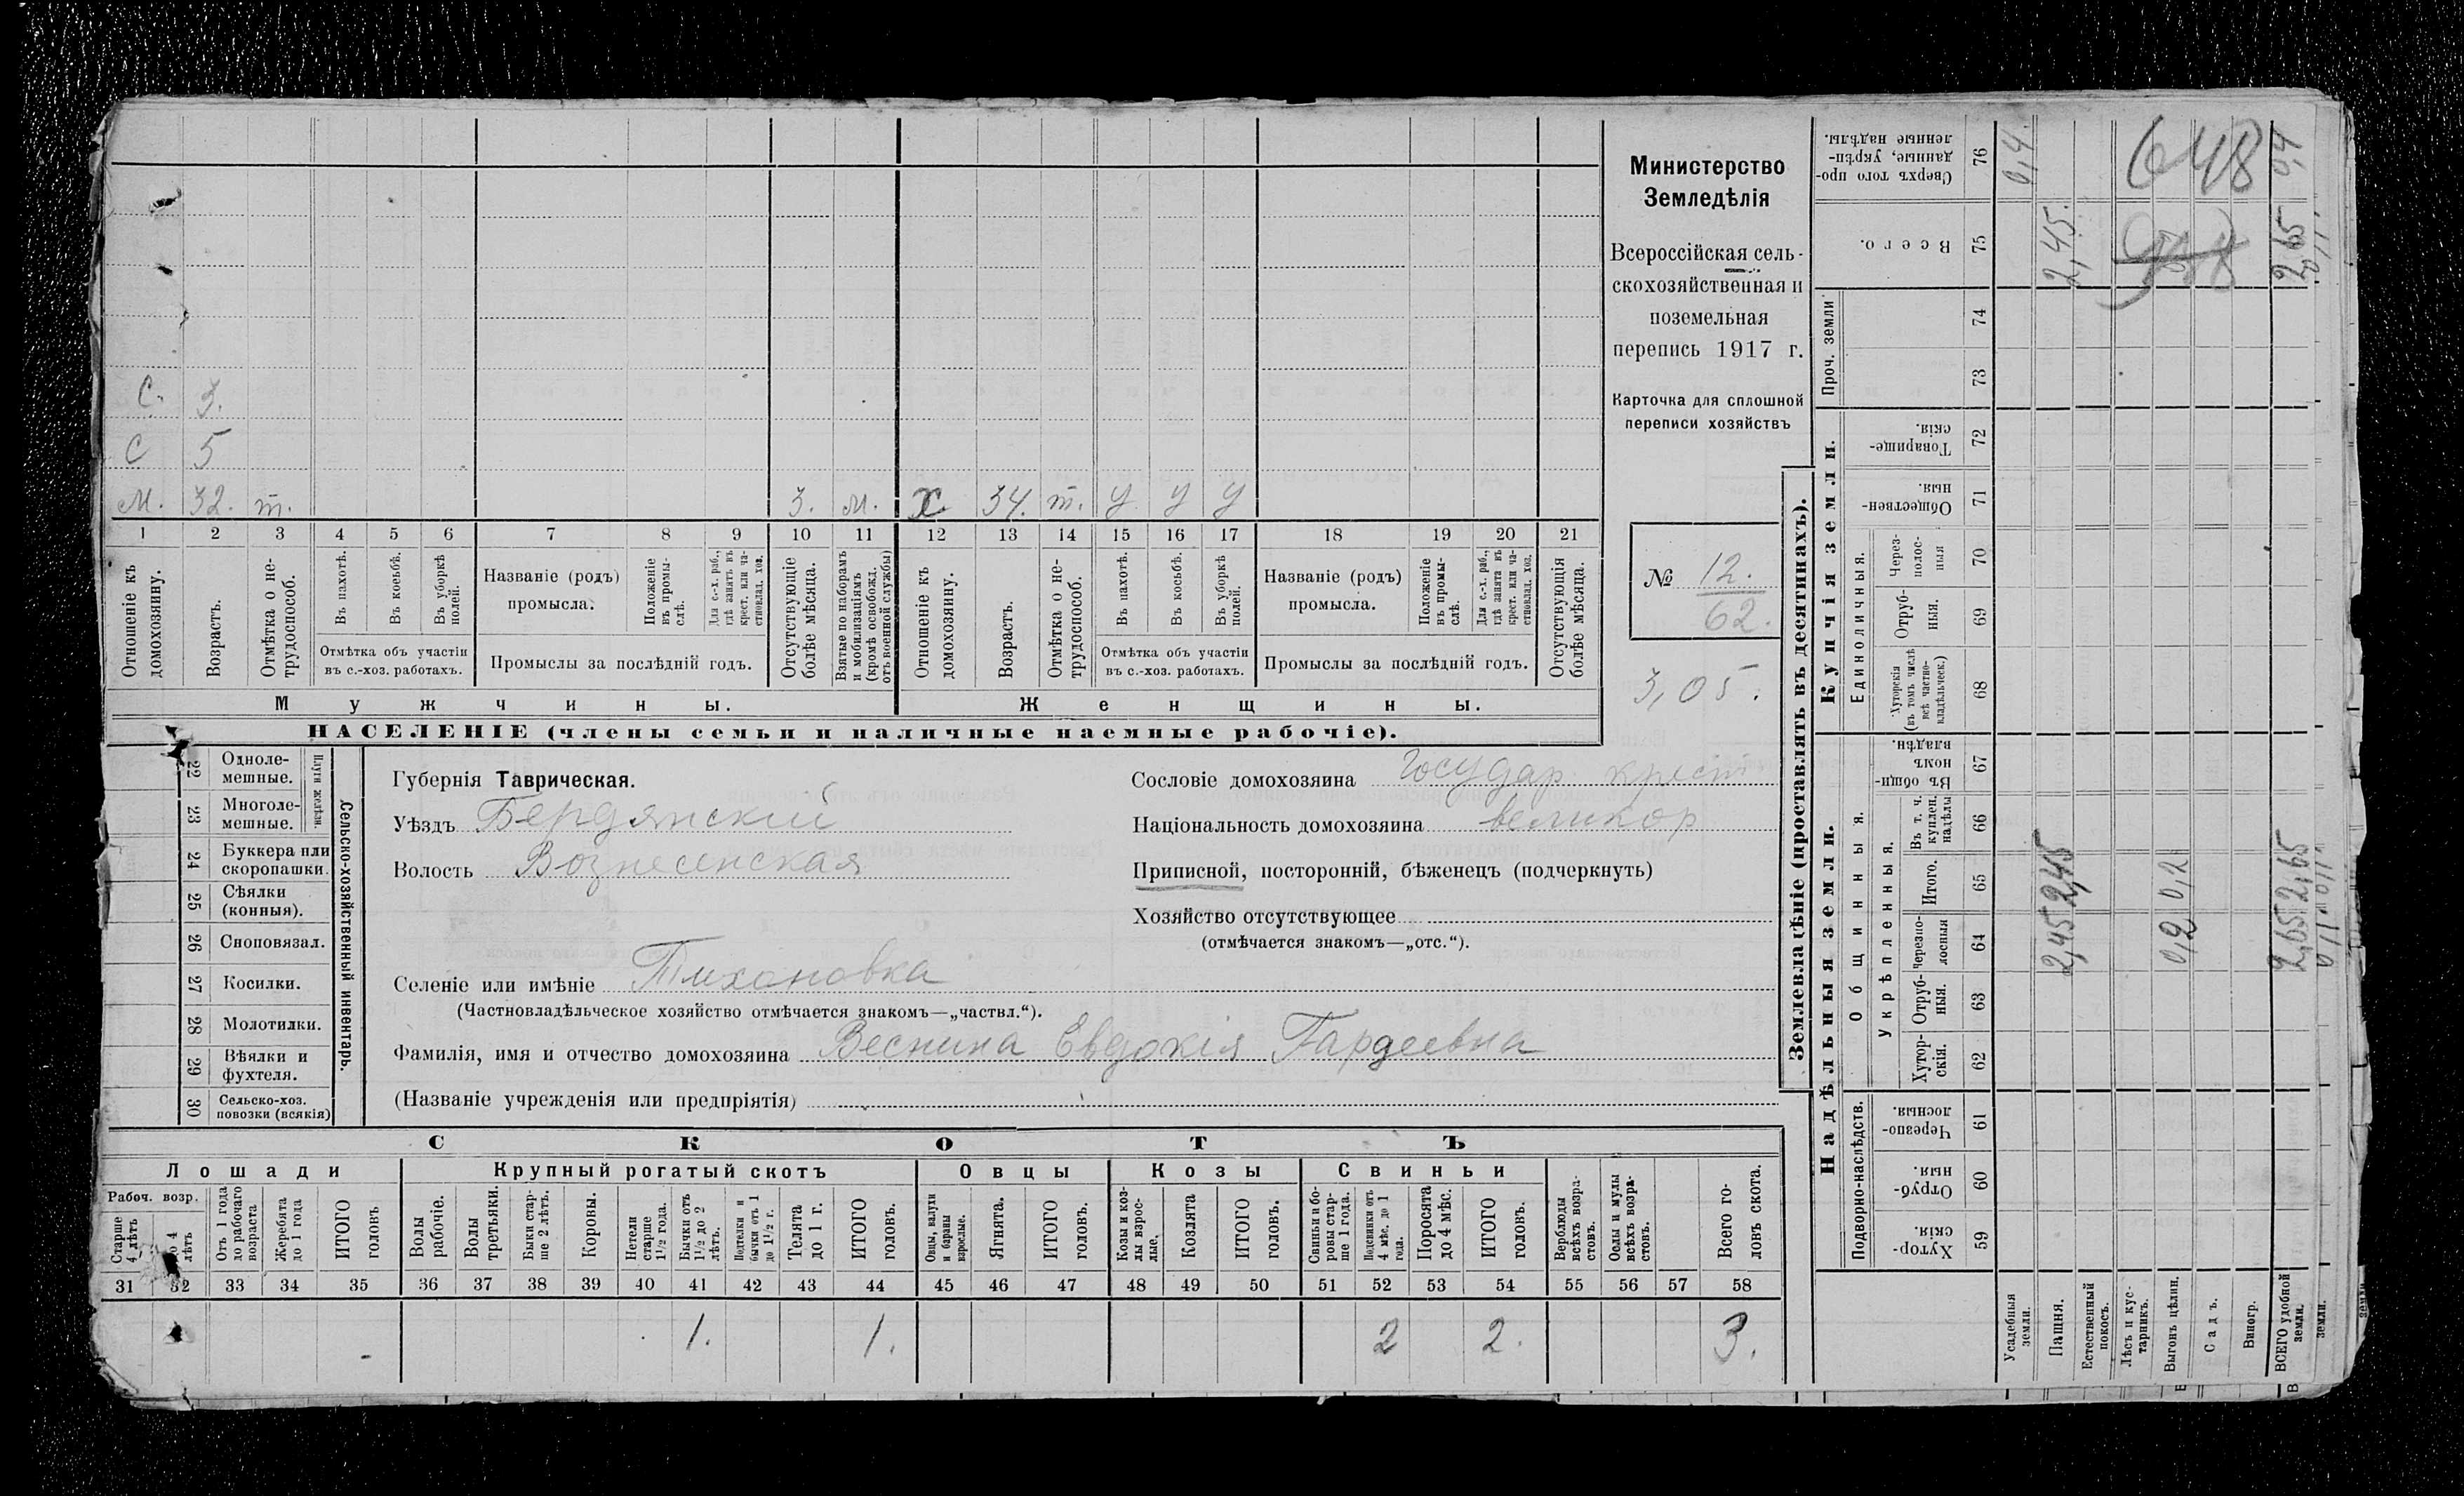 С. 3.
С 5
М. 32. т. 3. м. Х. 34. т. У У У
1 2 3 4 5 6 7 8 9 10 11 12 13 14 15 16 17 18 19 20 21
Отношеніе къ домохозяину.
Возрастъ.
Отмѣтка о не-трудоспособ.
Въ пахотѣ.
Въ косьбѣ.
Въ уборкѣ полей.
Отмѣтка объ участіи
въ с.-хоз. работахъ.
Названіе (родъ)
промысла.
Положеніе въ промы-слѣ.
Для с.-х. раб., гдѣ занятъ въ крест. или ча-стновлад. хоз.
Промыслы за послѣдній годъ.
Отсутствующіе болѣе мѣсяца.
Взятые по наборамъ и мобилизаціямъ (кромѣ освобожд. отъ военной службы)
Отношеніе къ домохозяину.
Возрастъ.
Отмѣтка о не-трудоспособ.
Въ пахотѣ.
Въ косьбѣ.
Въ уборкѣ полей.
Отмѣтка объ участіи
въ с.-хоз. работахъ.
Названіе (родъ)
промысла.
Положеніе въ промы-слѣ.
Для с.-х. раб., гдѣ занята въ крест. или ча-стновлад. хоз.
Промыслы за послѣдній годъ.
Отсутствующія болѣе мѣсяца.
Мужчины. Женщины.
НАСЕЛЕНІЕ (члены семьи и наличные наемные рабочіе).
Министерство
Земледѣлія
Всероссійская сель-
скохозяйственная и
поземельная
перепись 1917 г.
Карточка для сплошной
переписи хозяйствъ
№ 12.
62.
3,05.
Сельско-хозяйственный инвентарь.
Плуги желѣзн.
22 Одноле-мешные.
23 Многоле-мешные.
24 Буккера или скоропашки.
25 Сѣялки (конныя).
26 Сноповязал.
27 Косилки.
28 Молотилки.
29 Вѣялки и фухтеля.
30 Сельско-хоз. повозки (всякія)
Губернія Таврическая.
Уѣздъ Бердянскій
Волость Вознесенская
Селеніе или имѣніе Тихоновка
(Частновладѣльческое хозяйство отмѣчается знакомъ—„частвл.“).
Фамилія, имя и отчество домохозяина Веснина Евдокія Гардеевна
(Названіе учрежденія или предпріятія)
Сословіе домохозяина Государ. крест
Національность домохозяина великор
Приписной, посторонній, бѣженецъ (подчеркнуть)
Хозяйство отсутствующее
(отмѣчается знакомъ—„отс.“).
СКОТЪ
Лошади Крупный рогатый скотъ Овцы Козы Свиньи
Рабоч. возр.
Старше 4 лѣтъ
до 4 лѣтъ
Отъ 1 года до рабочаго возраста
Жеребята до 1 года
ИТОГО головъ
Волы рабочіе.
Волы третьяки.
Быки стар-ше 2 лѣтъ.
Коровы.
Нетели старше 1½ года.
Бычки отъ 1½ до 2 лѣтъ.
Подтелки и бычки отъ 1 до 1½ г.
Телята до 1 г.
ИТОГО головъ.
Овцы, валухи и бараны взрослые.
Ягнята.
ИТОГО головъ.
Козы и коз-лы взрос-лые.
Козлята
ИТОГО головъ.
Свиньи и бо-ровы стар-ше 1 года.
Подсвинки отъ 4 мѣс. до 1 года.
Поросята до 4 мѣс.
ИТОГО головъ.
Верблюды всѣхъ возра-стовъ.
Ослы и мулы всѣхъ возра-стовъ.
Всего го-ловъ скота.
31 32 33 34 35 36 37 38 39 40 41 42 43 44 45 46 47 48 49 50 51 52 53 54 55 56 57 58
1. 1. 2 2. 3.
Землевладѣніе (проставлять въ десятинахъ).
Надѣльныя земли. Купчія земли. Проч. земли
Подворно-наслѣдств.
Общинныя.
Укрѣпленныя.
Единоличныя.
59 Хутор-скія.
60 Отруб-ныя.
61 Черезпо-лосныя.
62 Хутор-скія.
63 Отруб-ныя.
64 Черезпо-лосныя
65 Итого.
66 Въ т. ч. куплен. надѣлы
67 Въ общи-номъ владѣн.
68 Хуторскія (въ томъ числѣ всѣ частно-владѣльческ.)
69 Отруб-ныя.
70 Через-полос-ныя
71 Обществен-ныя.
72 Товарище-скія.
73
74
75 Всего.
76 Сверхъ того про-данные, укрѣп-ленные надѣлы.
Усадебныя земли. 0,4.
Пашня. 2,45 2,45 2,45.
Естественный покосъ.
Лѣсъ и кус-тарникъ.
Выгонъ цѣлин. 0,2 0,2
Садъ.
Виногр.
ВСЕГО удобной земли. 2,65 2,65 2,65 0,4
земли. 0,11 0,11 0,11
648